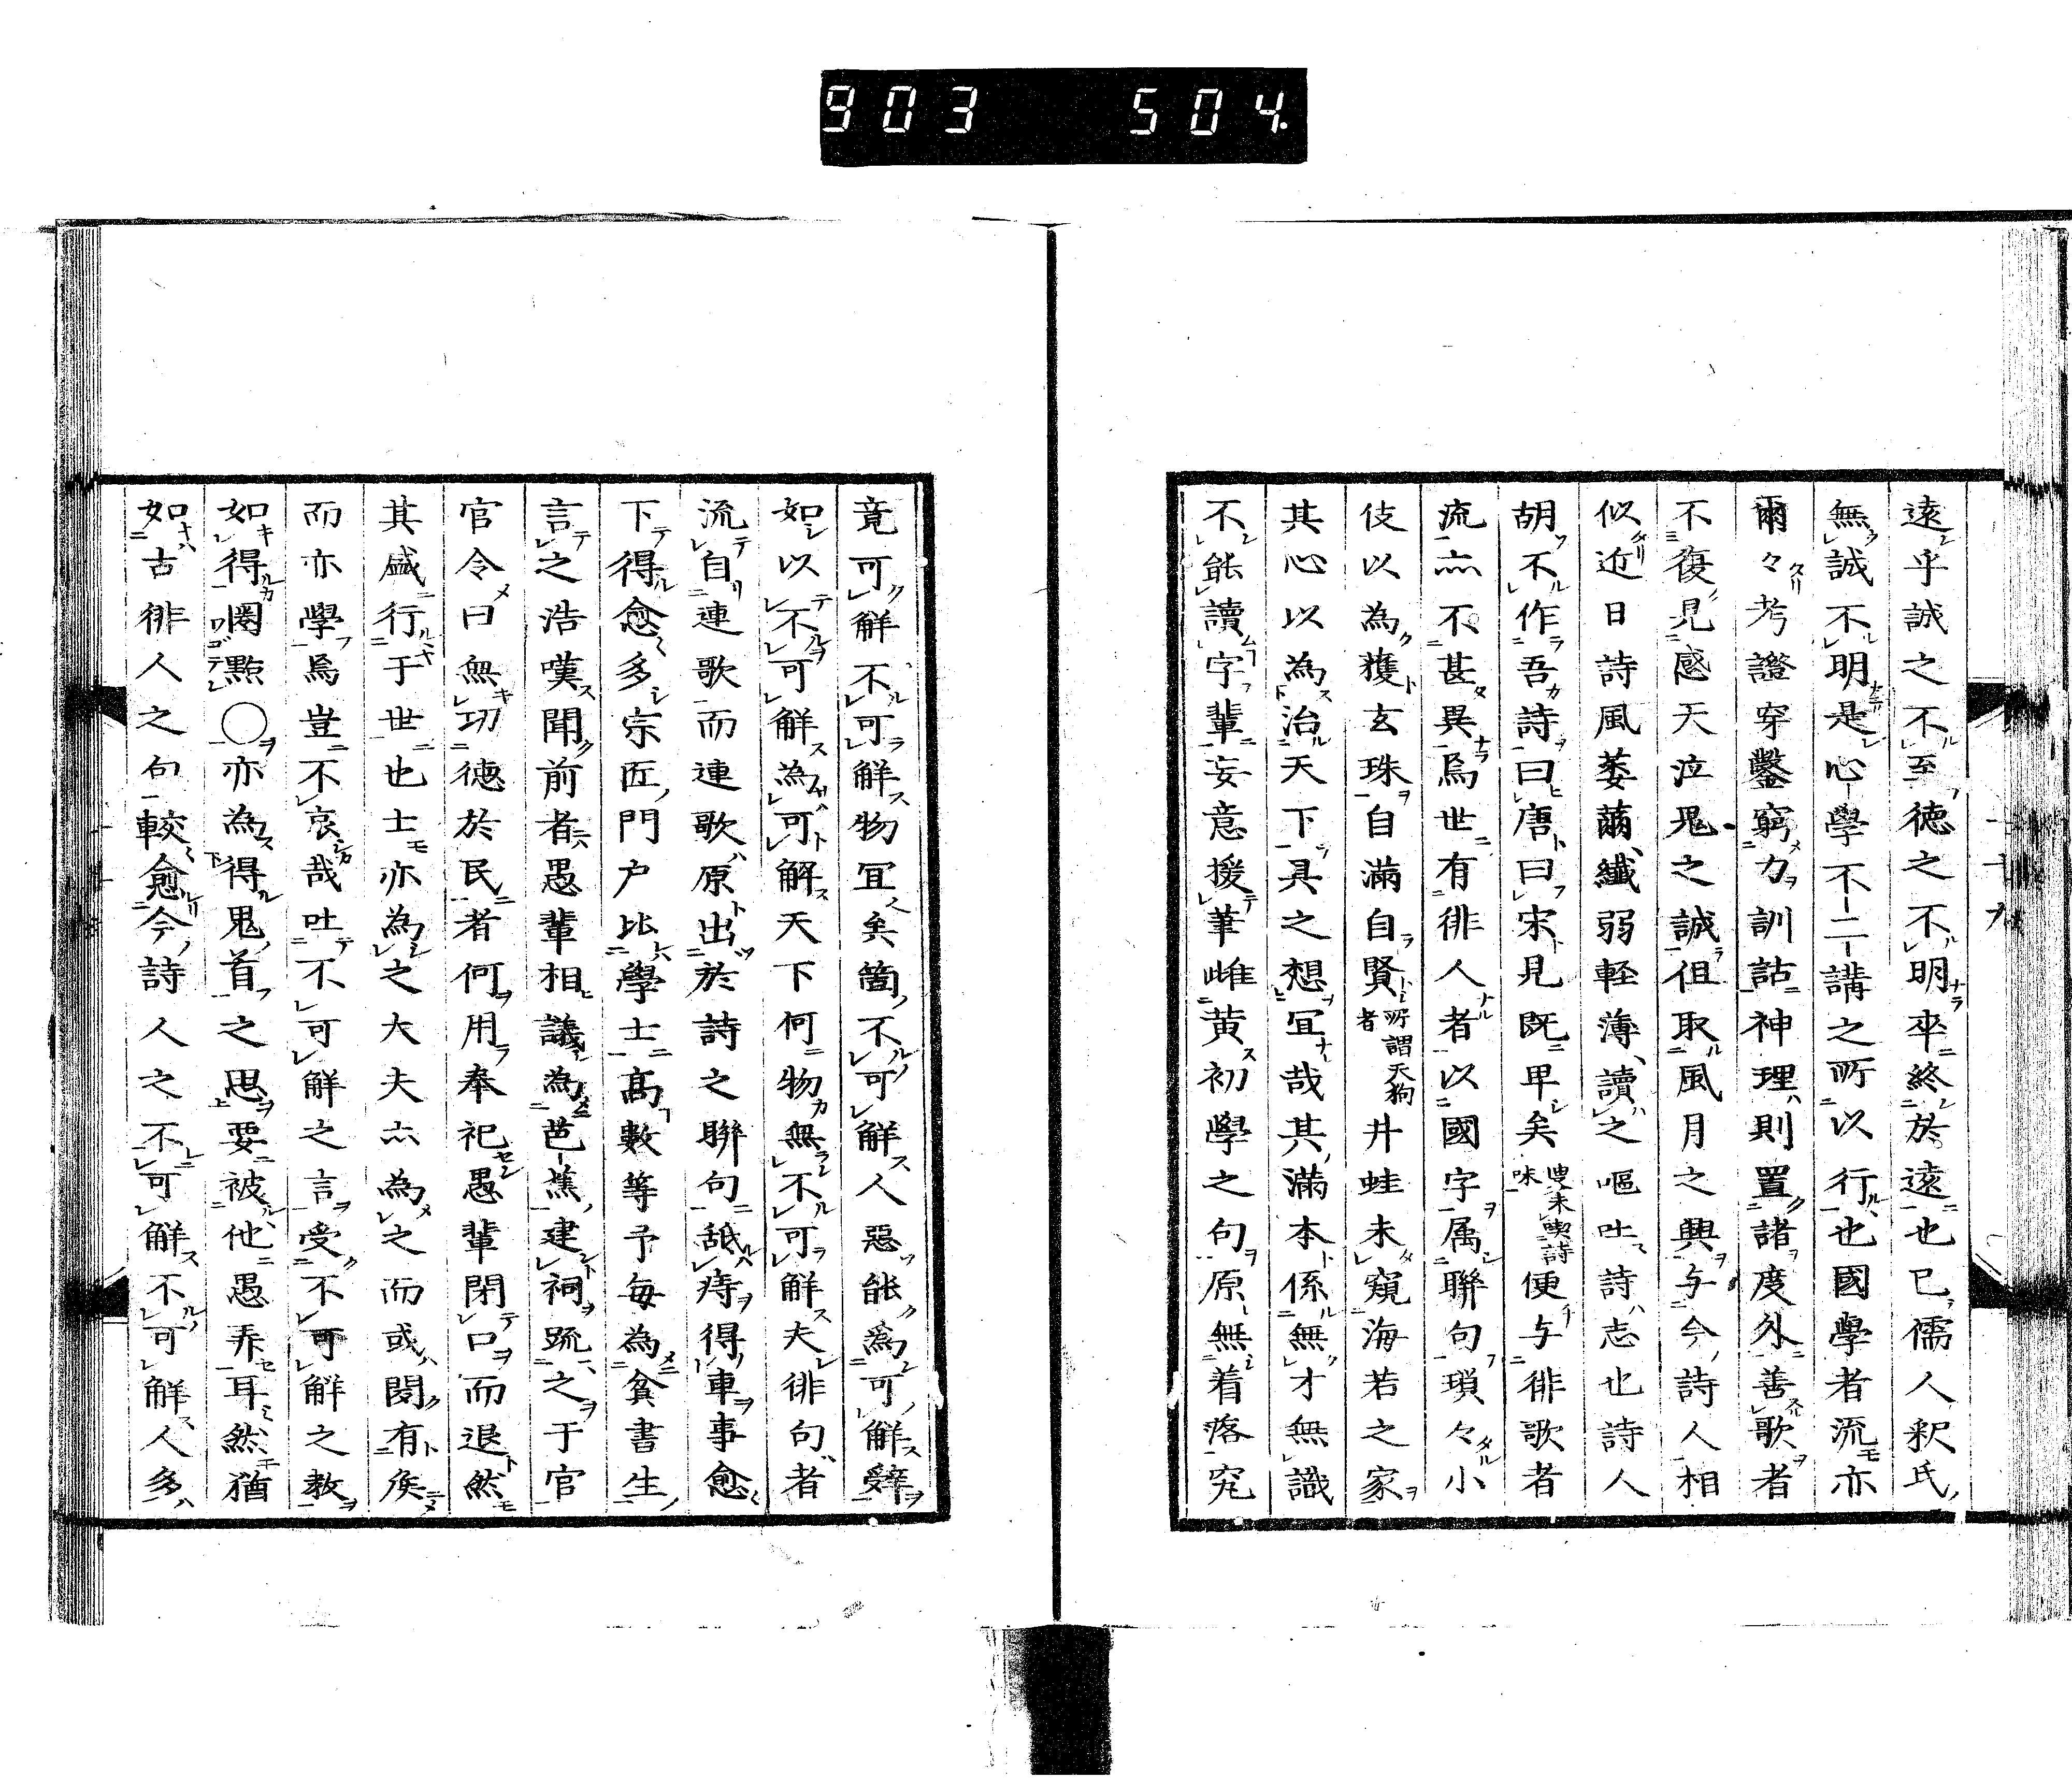 903 504
遠乎誠之不至德之不明卒終於遠也已儒人釈氏
無誠不明是心學不二講之所以行也國學者流亦
爾々考證穿鑿窮力訓詁神理則置諸度外善歌者
不復見感天泣鬼之誠徂取風月之興与今詩人相
似近日詩風萎薾纖弱輕薄讀之嘔吐詩志也詩人
胡不作吾詩曰唐曰宋見既卑矣未喫詩味便与徘歌者
流亦不甚異焉世有徘人者以國字属聯句瑣々小
伎以為獲玄珠自滿自賢所謂天狗者井蛙未窺海若之家
其心以為治天下具之想冝哉其滿本係無才無識
不能讀字輩妄意援筆雌黄初學之句原無着落究
竟可解不可解物冝矣箇不可解人惡能爲可解辤
如以不可解為可解天下何物無不可解夫徘句者
流自連歌而連歌原出於詩之聯句舐痔得車事愈
下得愈多宗匠門户比學士高數等予每為貧書生
言之浩嘆聞前者愚輩相議為芭蕉建祠䟽之于官
官令曰無功德於民者何用奉祀愚輩閉口而退然
其盛行于世也士亦為之大夫亦為之而或聞有矦
而亦學焉豈不哀哉吐不可解之言受不可解之教
如得圏點〇亦為得鬼首之思要被他愚弄耳然猶
如古徘人之句較愈今詩人之不可解不可解人多